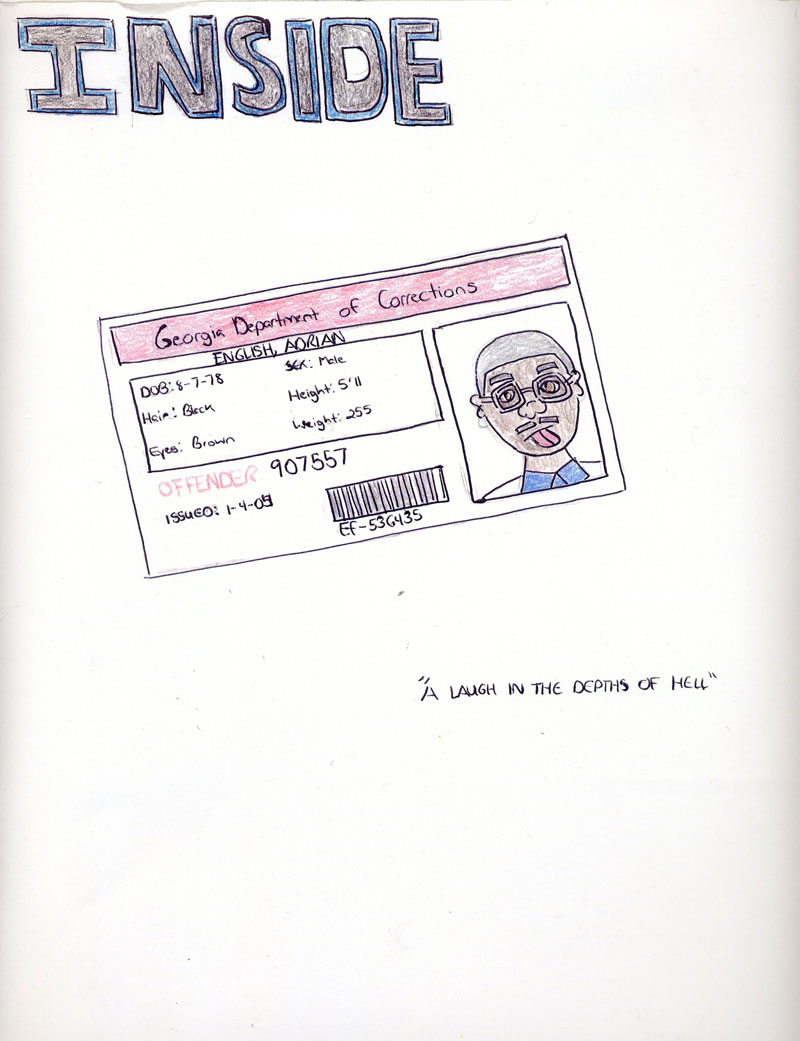 INSIDE
Georgia Department of Corrections
ENGLISH, ADRIAN
DOB: 8-7-78
SEX: Male
Hair: Black
Height: 5'11
Eyes: Brown
Weight: 255
OFFENDER 907557
ISSUED: 1-4-05
EF-536435
"A LAUGH IN THE DEPTHS OF HELL"